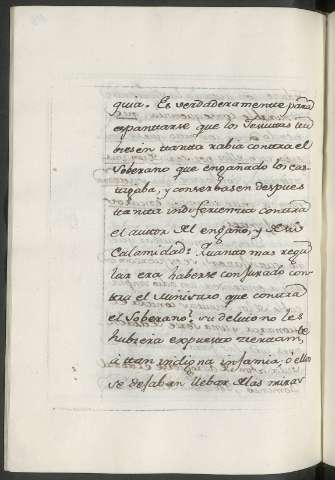 quia. Es verdaderamente para
espantarse que los Jesuitas tu
biesen tanta rabia contra el
Soberano que engañado los cas
tigaba, y conserbasen despues
tanta indiferencia contra
el autor del engaño, y de su
Calamidad: Quando mas regu
lar era haberse conjurado con
tra el Ministro que contra
el Soberano? su delacion les
hubiera expuesto ciertamte
á tan indigna infamia, ó ellos
se dejaban llebar de las miras